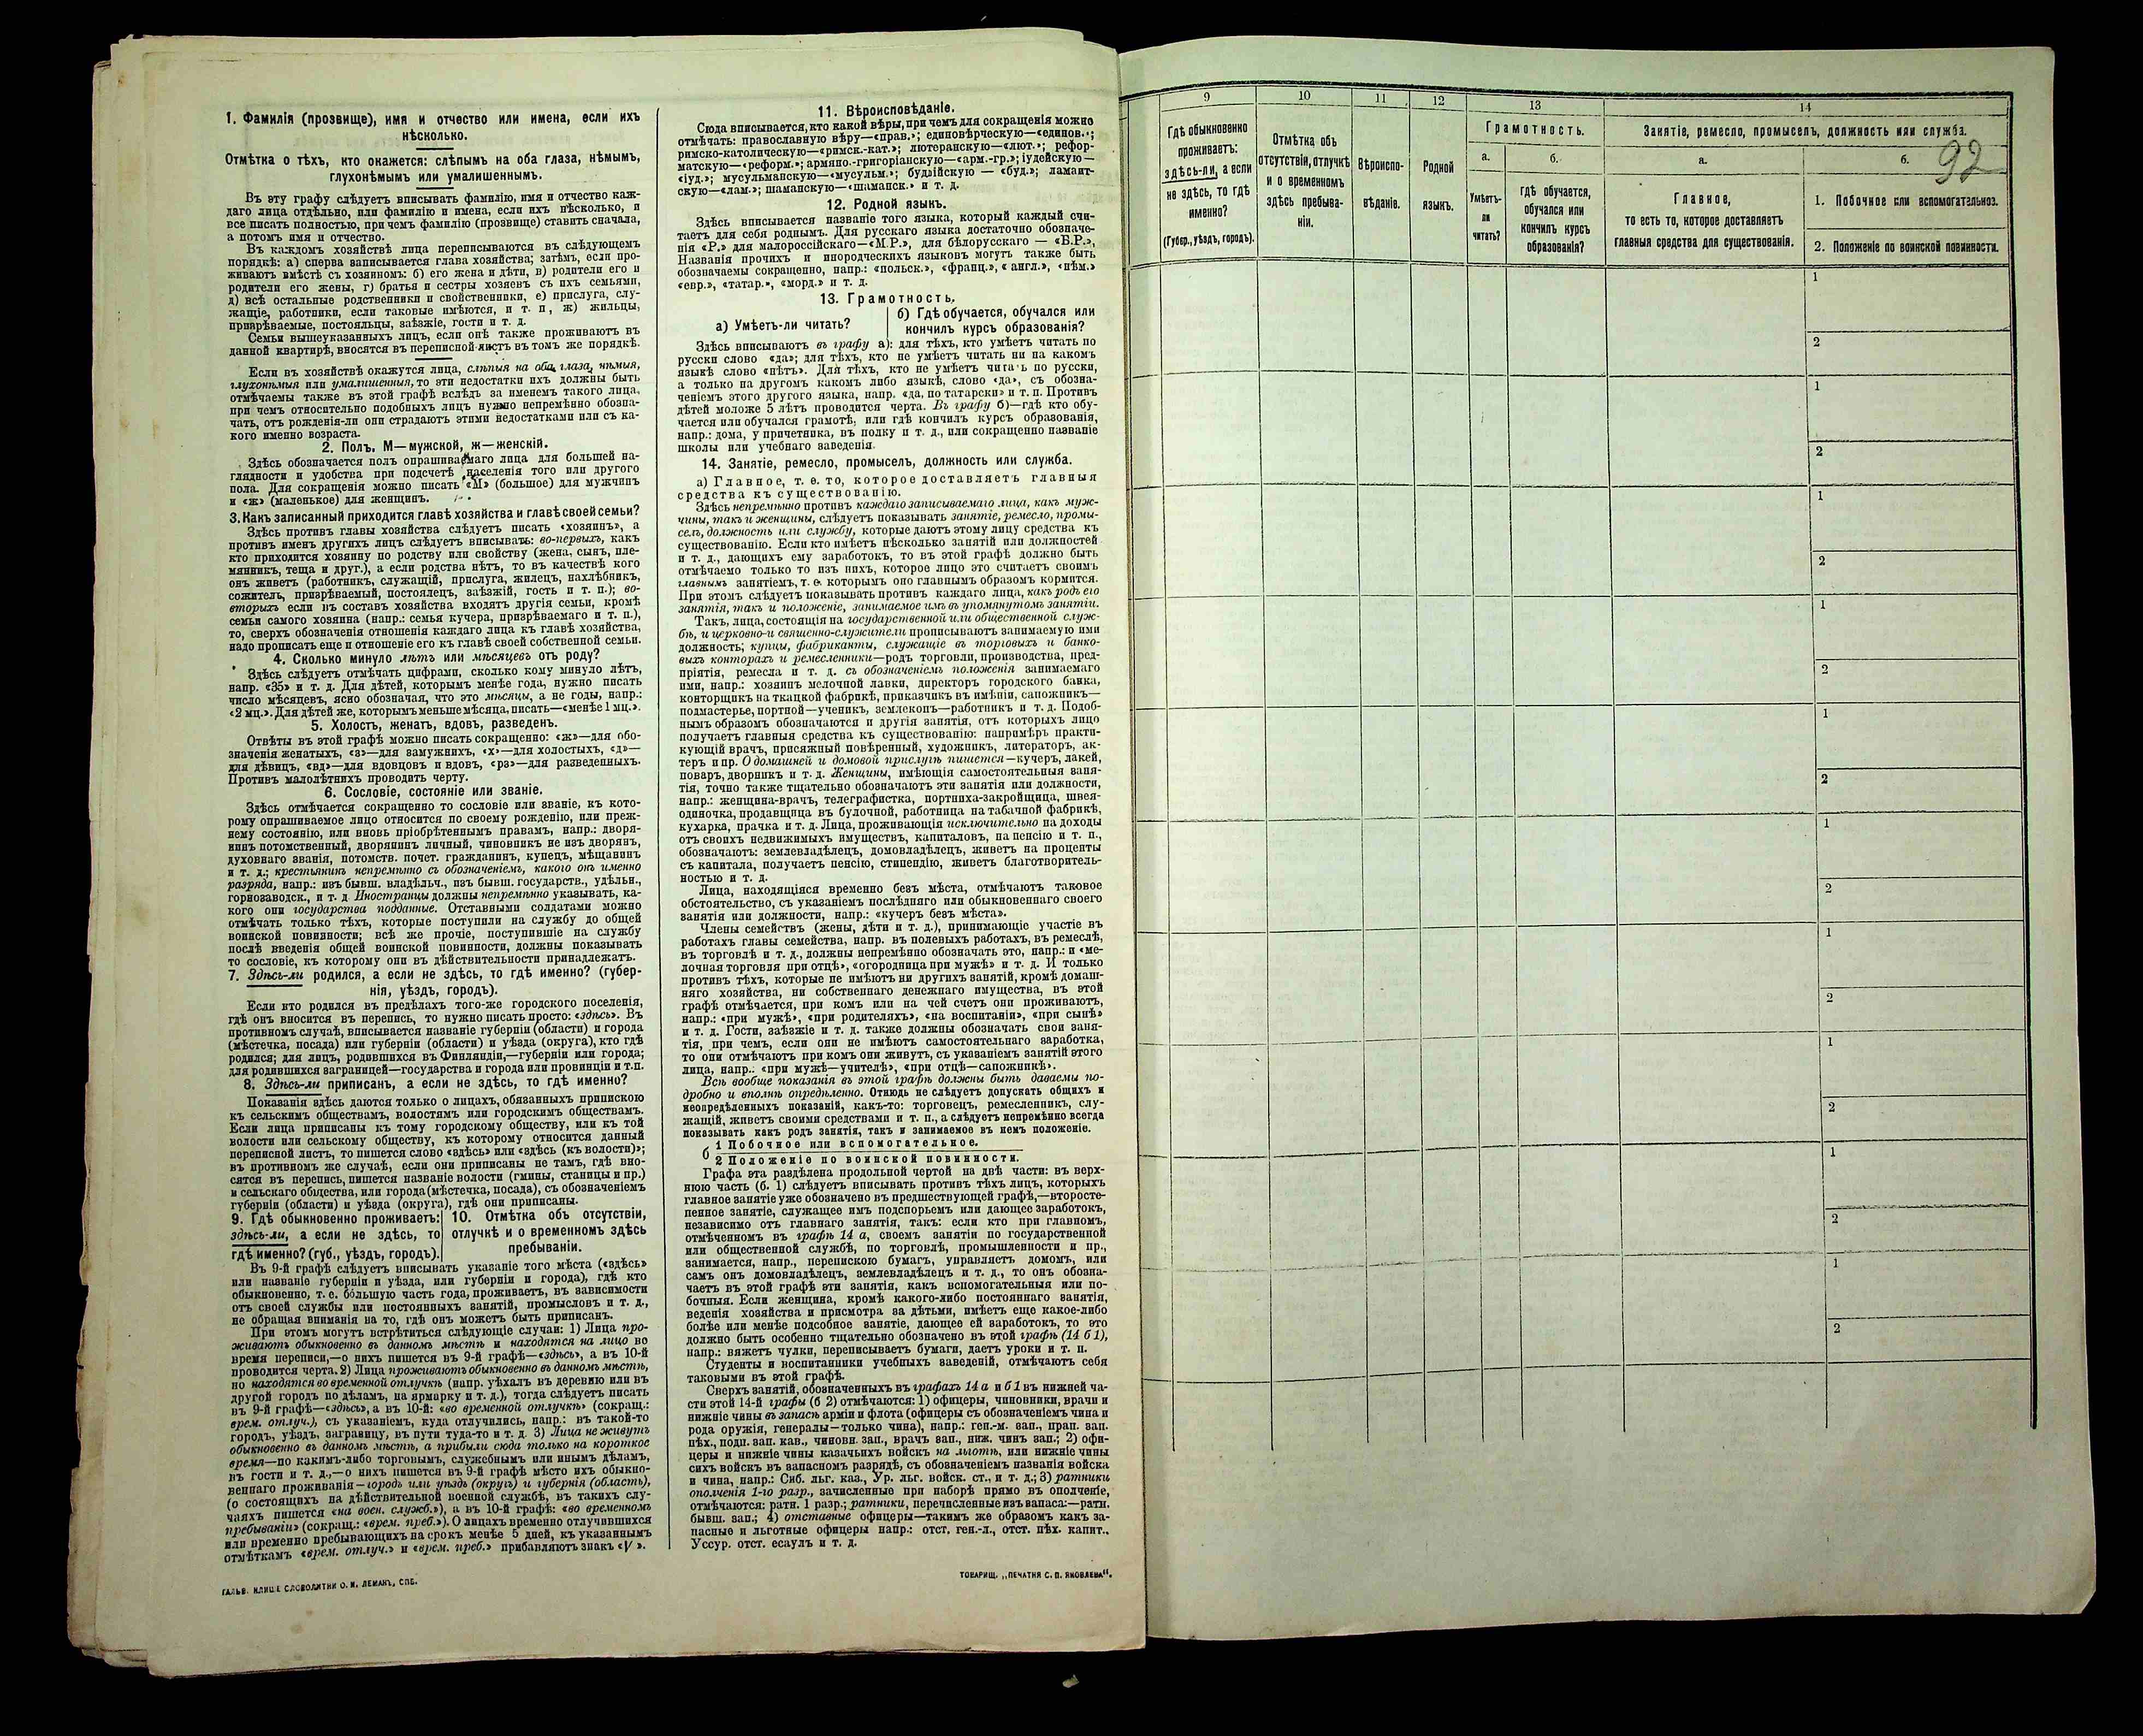 1. Фамилія (прозвище), имя и отчество или имена, если ихъ
нѣсколько.
Отмѣтка о тѣхъ, кто окажется: слѣпымъ на оба глаза, нѣмымъ,
глухонѣмымъ или умалишеннымъ.
Въ эту графу слѣдуетъ вписывать фамилію, имя и отчество каж-
даго лица отдѣльно, или фамилію и имена, если ихъ нѣсколько, и
все писать полностью, при чемъ фамилію (прозвище) ставить сначала,
а потомъ имя и отчество.
Въ каждомъ хозяйствѣ лица переписываются въ слѣдующемъ
порядкѣ: а) сперва записывается глава хозяйства; затѣмъ, если про-
живаютъ вмѣстѣ съ хозяиномъ: б) его жена и дѣти, в) родители его и
родители его жены, г) братья и сестры хозяевъ съ ихъ семьями,
д) всѣ остальные родственники и свойственники, е) прислуга, слу-
жащіе, работники, если таковые имѣются, и т. п, ж) жильцы,
призрѣваемые, постояльцы, заѣзжіе, гости и т. д.
Семьи вышеуказанныхъ лицъ, если онѣ также проживаютъ въ
данной квартирѣ, вносятся въ переписной листъ въ томъ же порядкѣ.
Если въ хозяйствѣ окажутся лица, слѣпыя на оба глаза, нѣмыя,
глухонѣмыя или умалишенныя, то эти недостатки ихъ должны быть
отмѣчаемы также въ этой графѣ вслѣдъ за именемъ такого лица,
при чемъ относительно подобныхъ лицъ нужно непремѣнно обозна-
чать, отъ рожденія-ли они страдаютъ этими недостатками или съ ка-
кого именно возраста.
2. Полъ. М—мужской, ж—женскій.
Здѣсь обозначается полъ опрашиваемаго лица для большей на-
глядности и удобства при подсчетѣ населенія того или другого
пола. Для сокращенія можно писать «М» (большое) для мужчинъ
и «ж» (маленькое) для женщинъ.
3. Какъ записанный приходится главѣ хозяйства и главѣ своей семьи?
Здѣсь противъ главы хозяйства слѣдуетъ писать «хозяинъ», а
противъ именъ другихъ лицъ слѣдуетъ вписывать: во-первыхъ, какъ
кто приходится хозяину по родству или свойству (жена, сынъ, пле-
мянникъ, теща и друг.), а если родства нѣтъ, то въ качествѣ кого
онъ живетъ (работникъ, служащій, прислуга, жилецъ, нахлѣбникъ,
сожитель, призрѣваемый, постоялецъ, заѣзжій, гость и т. п.); во-
вторыхъ если въ составъ хозяйства входятъ другія семьи, кромѣ
семьи самого хозяина (напр.: семья кучера, призрѣваемаго и т. п.),
то, сверхъ обозначенія отношенія каждаго лица къ главѣ хозяйства,
надо прописать еще и отношеніе его къ главѣ своей собственной семьи.
4. Сколько минуло лѣтъ или мѣсяцевъ отъ роду?
Здѣсь слѣдуетъ отмѣчать цифрами, сколько кому минуло лѣтъ,
напр. «35» и т. д. Для дѣтей, которымъ менѣе года, нужно писать
число мѣсяцевъ, ясно обозначая, что это мѣсяцы, а не годы, напр.:
«2 мц.». Для дѣтей же, которымъ меньше мѣсяца, писать—«менѣе 1 мц.».
5. Холостъ, женатъ, вдовъ, разведенъ.
Отвѣты въ этой графѣ можно писать сокращенно: «ж»—для обо-
значенія женатыхъ, «з»—для замужнихъ, «х»—для холостыхъ, «д»—
для дѣвицъ, «вд»—для вдовцовъ и вдовъ, «рз»—для разведенныхъ.
Противъ малолѣтнихъ проводить черту.
6. Сословіе, состояніе или званіе.
Здѣсь отмѣчается сокращенно то сословіе или званіе, къ кото-
рому опрашиваемое лицо относится по своему рожденію, или преж-
нему состоянію, или вновь пріобрѣтеннымъ правамъ, напр.: дворя-
нинъ потомственный, дворянинъ личный, чиновникъ не изъ дворянъ,
духовнаго званія, потомств. почет. гражданинъ, купецъ, мѣщанинъ
и т. д.; крестьянинъ непремѣнно съ обозначеніемъ, какого онъ именно
разряда, напр.: изъ бывш. владѣльч., изъ бывш. государств., удѣльн.,
горнозаводск., и т. д Иностранцы должны непремѣнно указывать, ка-
кого они государства подданные. Отставными солдатами можно
отмѣчать только тѣхъ, которые поступили на службу до общей
воинской повинности; всѣ же прочіе, поступившіе на службу
послѣ введенія общей воинской повинности, должны показывать
то сословіе, къ которому они въ дѣйствительности принадлежатъ.
7. Здѣсь-ли родился, а если не здѣсь, то гдѣ именно? (губер-
нія, уѣздъ, городъ).
Если кто родился въ предѣлахъ того-же городского поселенія,
гдѣ онъ вносится въ перепись, то нужно писать просто: «здѣсь». Въ
противномъ случаѣ, вписывается названіе губерніи (области) и города
(мѣстечка, посада) или губерніи (области) и уѣзда (округа), кто гдѣ
родился; для лицъ, родившихся въ Финляндіи,—губерніи или города;
для родившихся заграницей—государства и города или провинціи и т.п.
8. Здѣсь-ли приписанъ, а если не здѣсь, то гдѣ именно?
Показанія здѣсь даются только о лицахъ, обязанныхъ припискою
къ сельскимъ обществамъ, волостямъ или городскимъ обществамъ.
Если лица приписаны къ тому городскому обществу, или къ той
волости или сельскому обществу, къ которому относится данный
переписной листъ, то пишется слово «здѣсь» или «здѣсь (къ волости)»;
въ противномъ же случаѣ, если они приписаны не тамъ, гдѣ вно-
сятся въ перепись, пишется названіе волости (гмины, станицы и пр.)
и сельскаго общества, или города (мѣстечка, посада), съ обозначеніемъ
губерніи (области) и уѣзда (округа), гдѣ они приписаны.
9. Гдѣ обыкновенно проживаетъ:
здѣсь-ли, а если не здѣсь, то
гдѣ именно? (губ., уѣздъ, городъ).
10. Отмѣтка объ отсутствіи,
отлучкѣ и о временномъ здѣсь
пребываніи.
Въ 9-й графѣ слѣдуетъ вписывать указаніе того мѣста («здѣсь»
или названіе губерніи и уѣзда, или губерніи и города), гдѣ кто
обыкновенно, т. е. бо́льшую часть года, проживаетъ, въ зависимости
отъ своей службы или постоянныхъ занятій, промысловъ и т. д.,
не обращая вниманія на то, гдѣ онъ можетъ быть приписанъ.
При этомъ могутъ встрѣтиться слѣдующіе случаи: 1) Лица про-
живаютъ обыкновенно въ данномъ мѣстѣ и находятся на лицо во
время переписи,—о нихъ пишется въ 9-й графѣ—«здѣсь», а въ 10-й
проводится черта. 2) Лица проживаютъ обыкновенно въ данномъ мѣстѣ,
но находятся во временной отлучкѣ (напр. уѣхалъ въ деревню или въ
другой городъ по дѣламъ, на ярмарку и т. д.), тогда слѣдуетъ писать
въ 9-й графѣ—«здѣсь», а въ 10-й: «во временной отлучкѣ» (сокращ.:
врем. отлуч.), съ указаніемъ, куда отлучились, напр.: въ такой-то
городъ, уѣздъ, заграницу, въ пути туда-то и т. д. 3) Лица не живутъ
обыкновенно въ данномъ мѣстѣ, а прибыли сюда только на короткое
время—по какимъ-либо торговымъ, служебнымъ или инымъ дѣламъ,
въ гости и т. д.,—о нихъ пишется въ 9-й графѣ мѣсто ихъ обыкно-
веннаго проживанія—городъ или уѣздъ (округъ) и губернія (область),
(о состоящихъ на дѣйствительной военной службѣ, въ такихъ слу-
чаяхъ пишется «на воен. служб.»), а въ 10-й графѣ: «во временномъ
пребываніи» (сокращ.: «врем. преб.»). О лицахъ временно отлучившихся
или временно пребывающихъ на срокъ менѣе 5 дней, къ указаннымъ
отмѣткамъ «врем. отлуч.» и «врем. преб.» прибавляютъ знакъ «V».
ГАЛЬВ. КЛИШЕ СЛОВОЛИТНИ О. И. ЛЕМАНЪ, СПБ.
11. Вѣроисповѣданіе.
Сюда вписывается, кто какой вѣры, при чемъ для сокращенія можно
отмѣчать: православную вѣру—«прав.»; единовѣрческую—«единов.»;
римско-католическую—«римск.-кат.»; лютеранскую—«лют.»; рефор-
матскую—«реформ.»; армяно.-григоріанскую—«арм.-гр.»; іудейскую—
«іуд.»; мусульманскую—«мусульм.»; буддійскую — «буд.»; ламаит-
скую—«лам.»; шаманскую—«шаманск.» и т. д.
12. Родной языкъ.
Здѣсь вписывается названіе того языка, который каждый счи-
таетъ для себя роднымъ. Для русскаго языка достаточно обозначе-
нія «Р.» для малороссійскаго—«М.Р.», для бѣлорусскаго — «Б.Р.»,
Названія прочихъ и инородческихъ языковъ могутъ также быть
обозначаемы сокращенно, напр.: «польск.», «франц.», « англ.», «нѣм.»
«евр.», «татар.», «морд.» и т. д.
13. Грамотность.
а) Умѣетъ-ли читать?
б) Гдѣ обучается, обучался или
кончилъ курсъ образованія?
Здѣсь вписываютъ въ графу а): для тѣхъ, кто умѣетъ читать по
русски слово «да»; для тѣхъ, кто не умѣетъ читать ни на какомъ
языкѣ слово «нѣтъ». Для тѣхъ, кто не умѣетъ читать по русски,
а только на другомъ какомъ либо языкѣ, слово «да», съ обозна-
ченіемъ этого другого языка, напр. «да, по татарски» и т. п. Противъ
дѣтей моложе 5 лѣтъ проводится черта. Въ графу б)—гдѣ кто обу-
чается или обучался грамотѣ, или гдѣ кончилъ курсъ образованія,
напр.: дома, у причетника, въ полку и т. д., или сокращенно названіе
школы или учебнаго заведенія.
14. Занятіе, ремесло, промыселъ, должность или служба.
а) Главное, т. е. то, которое доставляетъ главныя
средства къ существованію.
Здѣсь непремѣнно противъ каждаго записываемаго лица, какъ муж-
чины, такъ и женщины, слѣдуетъ показывать занятіе, ремесло, промы-
селъ, должность или службу, которые даютъ этому лицу средства къ
существованію. Если кто имѣетъ нѣсколько занятій или должностей
и т. д., дающихъ ему заработокъ, то въ этой графѣ должно быть
отмѣчаемо только то изъ нихъ, которое лицо это считаетъ своимъ
главнымъ занятіемъ, т. е. которымъ оно главнымъ образомъ кормится.
При этомъ слѣдуетъ показывать противъ каждаго лица, какъ родъ его
занятія, такъ и положеніе, занимаемое имъ въ упомянутомъ занятіи.
Такъ, лица, состоящія на государственной или общественной служ-
бѣ, и церковно-и священно-служители прописываютъ занимаемую ими
должность; купцы, фабриканты, служащіе въ торговыхъ и банко-
выхъ конторахъ и ремесленники—родъ торговли, производства, пред-
пріятія, ремесла и т. д. съ обозначеніемъ положенія занимаемаго
ими, напр.: хозяинъ мелочной лавки, директоръ городского банка,
конторщикъ на ткацкой фабрикѣ, приказчикъ въ имѣніи, сапожникъ—
подмастерье, портной—ученикъ, землекопъ—работникъ и т. д. Подоб-
нымъ образомъ обозначаются и другія занятія, отъ которыхъ лицо
получаетъ главныя средства къ существованію: напримѣръ практи-
кующій врачъ, присяжный повѣренный, художникъ, литераторъ, ак-
теръ и пр. О домашней и домовой прислугѣ пишется—кучеръ, лакей,
поваръ, дворникъ и т. д. Женщины, имѣющія самостоятельныя заня-
тія, точно также тщательно обозначаютъ эти занятія или должности,
напр.: женщина-врачъ, телеграфистка, портниха-закройщица, швея-
одиночка, продавщица въ булочной, работница на табачной фабрикѣ,
кухарка, прачка и т. д. Лица, проживающія исключительно на доходы
отъ своихъ недвижимыхъ имуществъ, капиталовъ, на пенсію и т. п.,
обозначаютъ: землевладѣлецъ, домовладѣлецъ, живетъ на проценты
съ капитала, получаетъ пенсію, стипендію, живетъ благотворитель-
ностью и т. д.
Лица, находящіяся временно безъ мѣста, отмѣчаютъ таковое
обстоятельство, съ указаніемъ послѣдняго или обыкновеннаго своего
занятія или должности, напр.: «кучеръ безъ мѣста».
Члены семействъ (жены, дѣти и т. д.), принимающіе участіе въ
работахъ главы семейства, напр. въ полевыхъ работахъ, въ ремеслѣ,
въ торговлѣ и т. д., должны непремѣнно обозначать это, напр.: и «ме-
лочная торговля при отцѣ», «огородница при мужѣ» и т. д. И только
противъ тѣхъ, которые не имѣютъ ни другихъ занятій, кромѣ домаш-
няго хозяйства, ни собственнаго денежнаго имущества, въ этой
графѣ отмѣчается, при комъ или на чей счетъ они проживаютъ,
напр.: «при мужѣ», «при родителяхъ», «на воспитаніи», «при сынѣ»
и т. д. Гости, заѣзжіе и т. д. также должны обозначать свои заня-
тія, при чемъ, если они не имѣютъ самостоятельнаго заработка,
то они отмѣчаютъ при комъ они живутъ, съ указаніемъ занятій этого
лица, напр.: «при мужѣ—учителѣ», «при отцѣ—сапожникѣ».
Всѣ вообще показанія въ этой графѣ должны быть даваемы по-
дробно и вполнѣ опредѣленно. Отнюдь не слѣдуетъ допускать общихъ и
неопредѣленныхъ показаній, какъ-то: торговецъ, ремесленникъ, слу-
жащій, живетъ своими средствами и т. п., а слѣдуетъ непремѣнно всегда
показывать какъ родъ занятія, такъ и занимаемое въ немъ положеніе.
б 1 Побочное или вспомогательное.
2 Положеніе по воинской повинности.
Графа эта раздѣлена продольной чертой на двѣ части: въ верх-
нюю часть (б. 1) слѣдуетъ вписывать противъ тѣхъ лицъ, которыхъ
главное занятіе уже обозначено въ предшествующей графѣ,—второсте-
пенное занятіе, служащее имъ подспорьемъ или дающее заработокъ,
независимо отъ главнаго занятія, такъ: если кто при главномъ,
отмѣченномъ въ графѣ 14 а, своемъ занятіи по государственной
или общественной службѣ, по торговлѣ, промышленности и пр.,
занимается, напр., перепискою бумагъ, управляетъ домомъ, или
самъ онъ домовладѣлецъ, землевладѣлецъ и т. д., то онъ обозна-
чаетъ въ этой графѣ эти занятія, какъ вспомогательныя или по-
бочныя. Если женщина, кромѣ какого-либо постояннаго занятія,
веденія хозяйства и присмотра за дѣтьми, имѣетъ еще какое-либо
болѣе или менѣе подсобное занятіе, дающее ей заработокъ, то это
должно быть особенно тщательно обозначено въ этой графѣ (14 б 1),
напр.: вяжетъ чулки, переписываетъ бумаги, даетъ уроки и т. п.
Студенты и воспитанники учебныхъ заведеній, отмѣчаютъ себя
таковыми въ этой графѣ.
Сверхъ занятій, обозначенныхъ въ графахъ 14 а и б 1 въ нижней ча-
сти этой 14-й графы (б 2) отмѣчаются: 1) офицеры, чиновники, врачи и
нижніе чины въ запасѣ арміи и флота (офицеры съ обозначеніемъ чина и
рода оружія, генералы—только чина), напр.: ген.-м. зап., прап. зап.
пѣх., подп. зап. кав., чиновн. зап., врачъ зап., ниж. чинъ зап.; 2) офи-
церы и нижніе чины казачьихъ войскъ на льготѣ, или нижніе чины
сихъ войскъ въ запасномъ разрядѣ, съ обозначеніемъ названія войска
и чина, напр.: Сиб. льг. каз., Ур. льг. войск. ст., и т. д.; 3) ратники
ополченія 1-го разр., зачисленные при наборѣ прямо въ ополченіе,
отмѣчаются: ратн. 1 разр.; ратники, перечисленные изъ запаса:—ратн.
бывш. зап.; 4) отставные офицеры—такимъ же образомъ какъ за-
пасные и льготные офицеры напр.: отст. ген.-л., отст. пѣх. капит.,
Уссур. отст. есаулъ и т. д.
ТОВАРИЩ. „ПЕЧАТНЯ С. П. ЯКОВЛЕВА“.
9
10
11
12
13
14
Гдѣ обыкновенно
проживаетъ:
здѣсь-ли, а если
не здѣсь, то гдѣ
именно?
(Губер., уѣздъ, городъ).
Отмѣтка объ
отсутствіи, отлучкѣ
и о временномъ
здѣсь пребыва-
ніи.
Вѣроиспо-
вѣданіе.
Родной
языкъ.
Грамотность.
а.
Умѣетъ-
ли
читать?
б.
гдѣ обучается,
обучался или
кончилъ курсъ
образованія?
Занятіе, ремесло, промыселъ, должность или служба.
а.
Главное,
то есть то, которое доставляетъ
главныя средства для существованія.
б.
92
1. Побочное или вспомогательное.
2. Положеніе по воинской повинности.
1
2
1
2
1
2
1
2
1
2
1
2
1
2
1
2
1
2
1
2